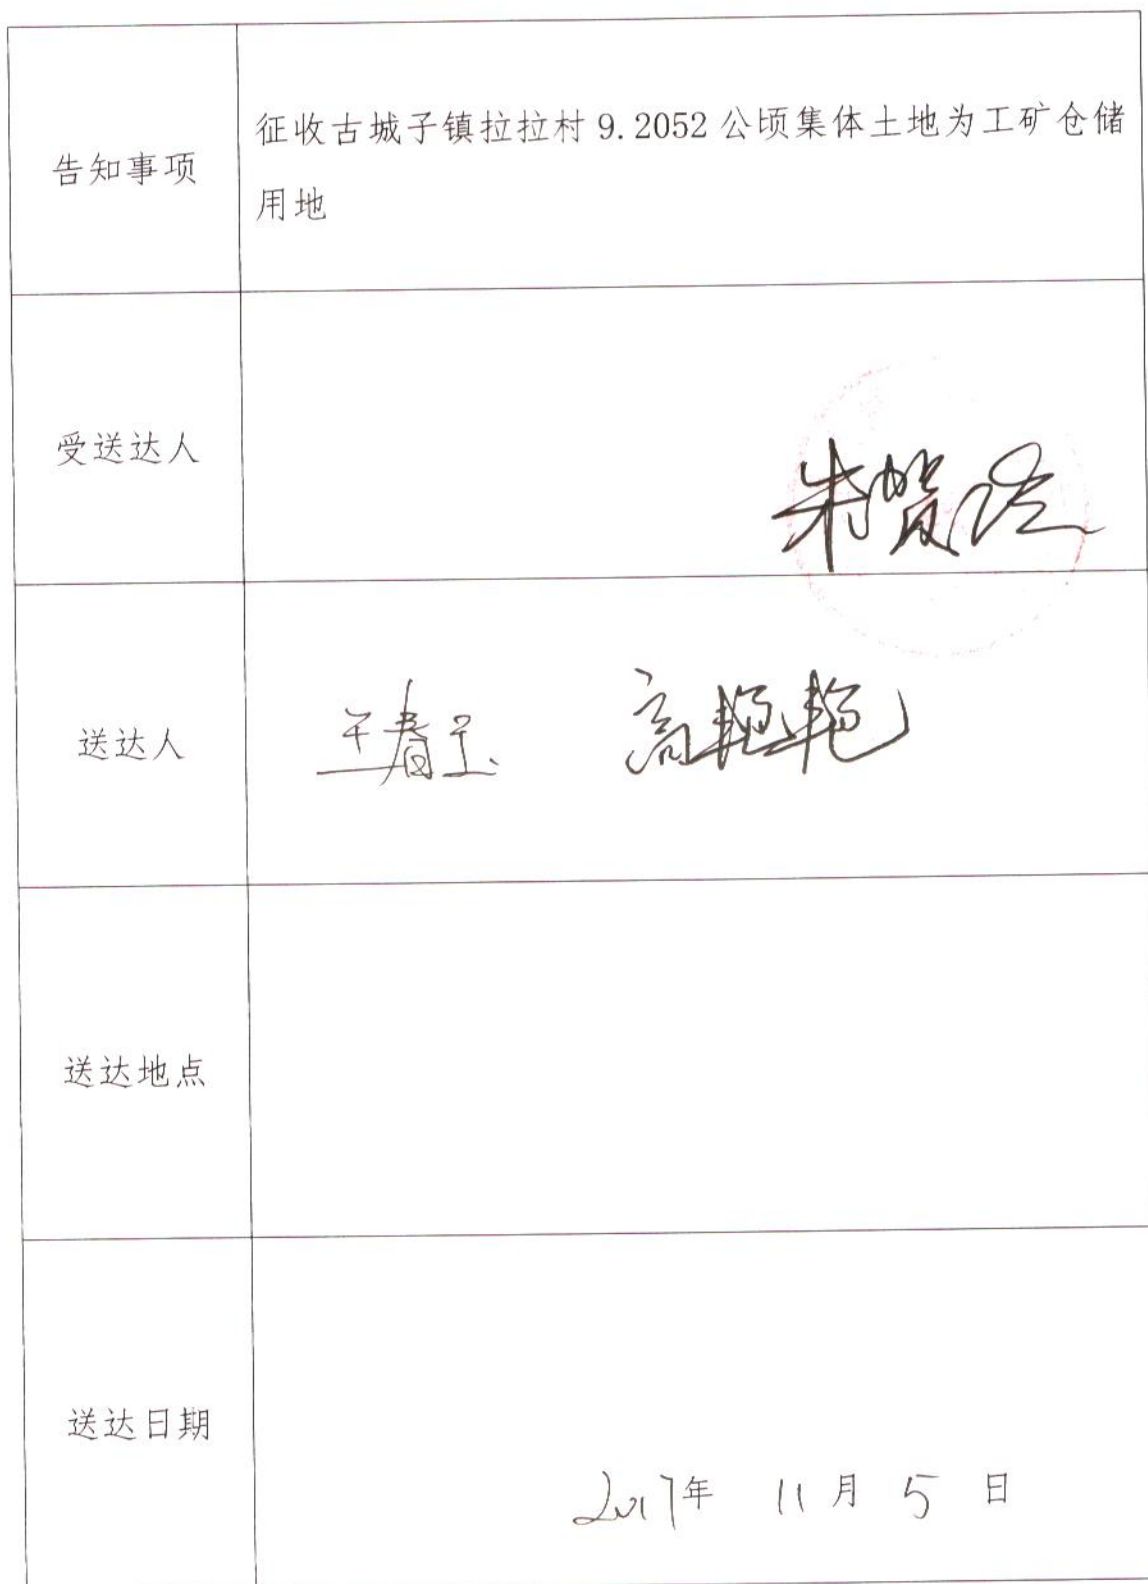 告知事项
征收古城子镇拉拉村 9.2052 公顷集体土地为工矿仓储
用地
受送达人
送达人
王春玉 高艳艳
送达地点
送达日期
2017年 11月 5 日